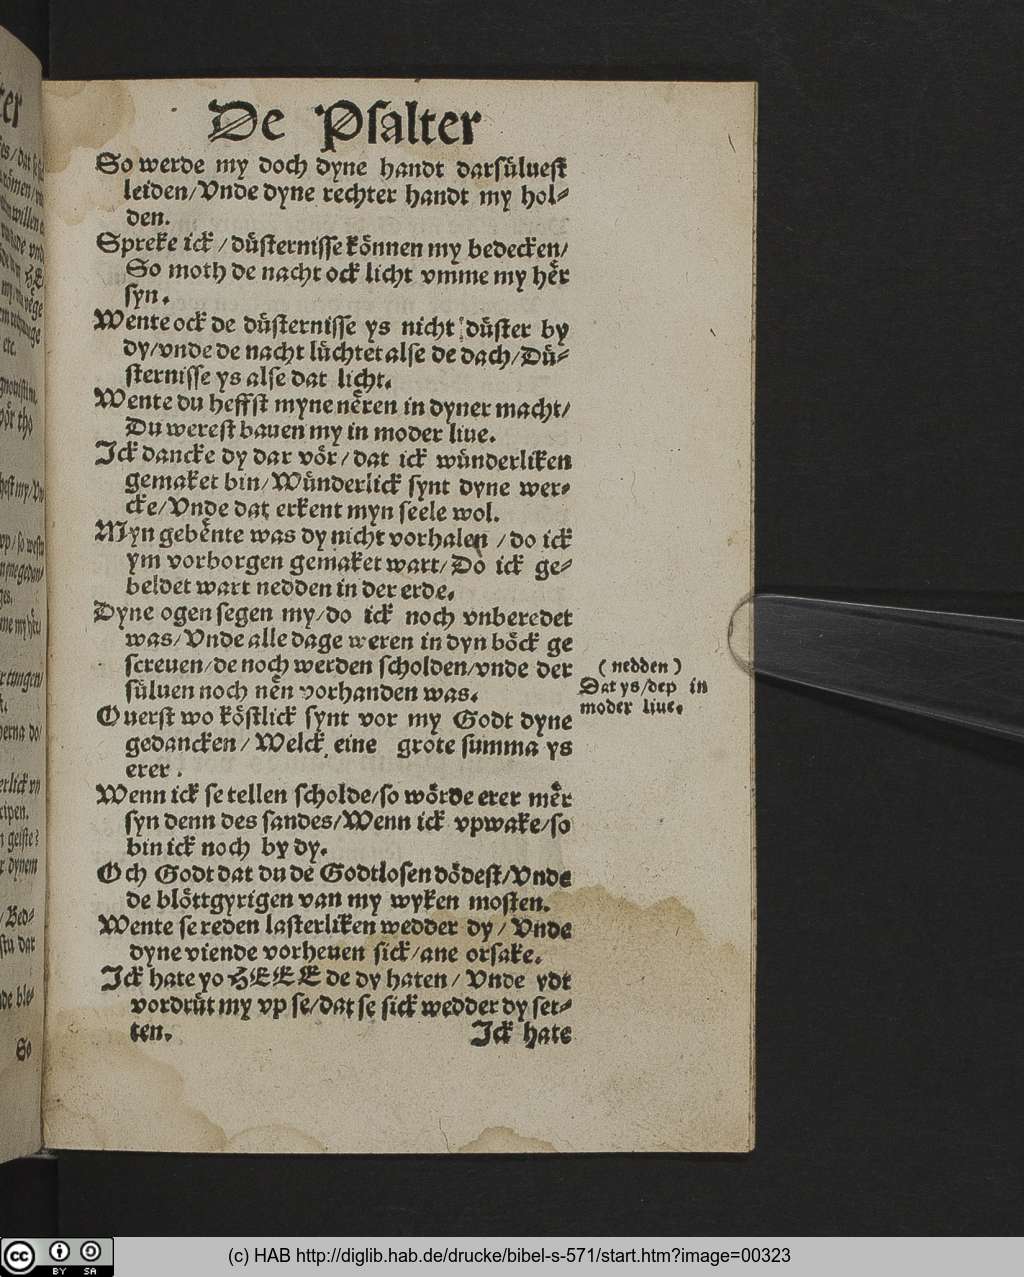 De Psalter
So werde my doch dyne handt darsuͤluest
leiden/Vnde dyne rechter handt my hol⸗
den.
Spreke ick/duͤsternisse koͤnnen my bedecken/
So moth de nacht ock licht vmme my heͤr
syn.
Wente ock de duͤsternisse ys nicht duͤster by
dy/vnde de nacht luͤchtet alse de dach/Duͤ⸗
sternisse ys alse dat licht.
Wente du heffst myne neͤren in dyner macht/
Du werest bauen my in moder liue.
Ick dancke dy dar voͤr/dat ick wuͤnderliken
gemaket bin/Wuͤnderlick synt dyne wer⸗
cke/Vnde dat erkent myn seele wol.
Myn gebeͤnte was dy nicht vorhalen/do ick
ym vorborgen gemaket wart/Do ick ge⸗
beldet wart nedden in der erde.
Dyne ogen segen my/do ick noch vnberedet
was/Vnde alle dage weren in dyn boͤck ge
screuen/de noch werden scholden/vnde der
suͤluen noch neͤn vorhanden was.
(nedden)
Dat ys/dep in
moder liue.
Ouerst wo koͤstlick synt vor my Godt dyne
gedancken/Welck eine grote summa ys
erer.
Wenn ick se tellen scholde/so woͤrde erer meͤr
syn denn des sandes/Wenn ick vpwake/so
bin ick noch by dy.
Och Godt dat du de Godtlosen doͤdest/Vnde
de bloͤttgyrigen van my wyken mosten.
Wente se reden lasterliken wedder dy/Vnde
dyne viende vorheuen sick/ane orsake.
Ick hate yo HERR de dy haten/Vnde ydt
vordruͤt my vp se/dat se sick wedder dy set⸗
ten.
Ick hate
So
(c) HAB http://diglib.hab.de/drucke/bibel-s-571/start.htm?image=00323
cc BY SA